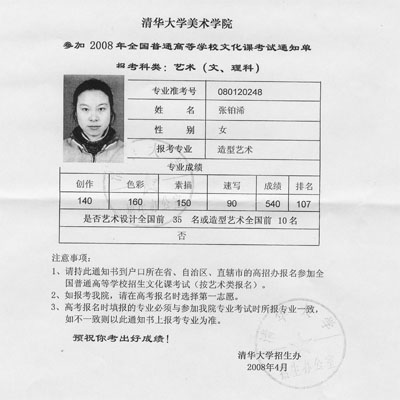 清华大学美术学院
参加 2008 年全国普通高等学校文化课考试通知单
报考科类：艺术（文、理科）
专业准考号 080120248
姓 名 张铂浠
性 别 女
报考专业 造型艺术
专业成绩
创作 色彩 素描 速写 成绩 排名
140 160 150 90 540 107
是否艺术设计全国前 35 名或造型艺术全国前 10 名
否
注意事项：
1、请持此通知书到户口所在省、自治区、直辖市的高招办报名参加全
国普通高等学校招生文化课考试（按艺术类报名）。
2、如报考我院，请在高考报名时选择第一志愿。
3、高考报名时填报的专业必须与参加我院专业考试时所报专业一致，
如不一致则以此通知书上报考专业为准。
预祝你考出好成绩！
清华大学招生办
2008年4月